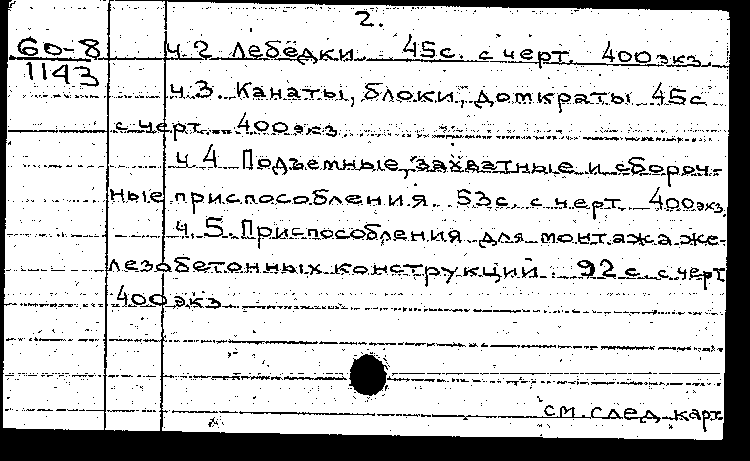 2.
60-8
1143
ч.2 Лебёдки 45с. с черт. 400экз.
ч.3. Канаты, блоки, домкраты 45с
с черт. 400экз
ч.4 Подъемные, захватные и сбороч-
ные приспособления. 53с. с черт. 400экз.
ч.5. Приспособления для монтажа же-
лезобетонных конструкций. 92с. с черт
400экз
см. след. карт.